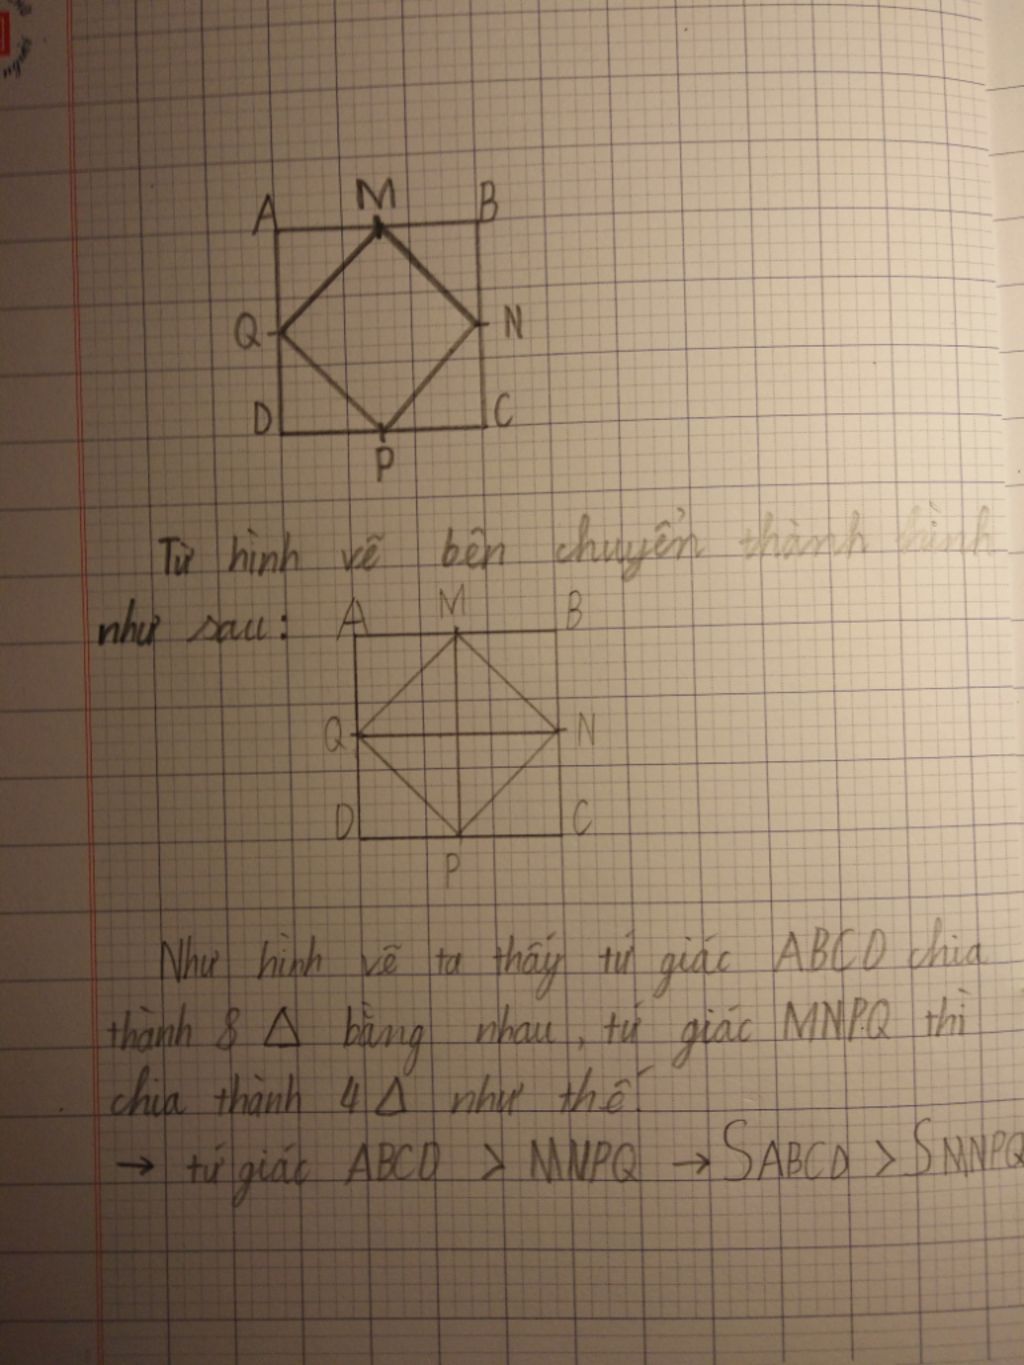 A M B
Q N
D C
P
Từ hình vẽ bên chuyển thành hình
như sau:
A M B
Q N
D C
P
Như hình vẽ ta thấy tứ giác ABCD chia
thành 8 Δ bằng nhau, tứ giác MNPQ thì
chia thành 4 Δ như thế.
→ tứ giác ABCD > MNPQ → SABCD > SMNPQ